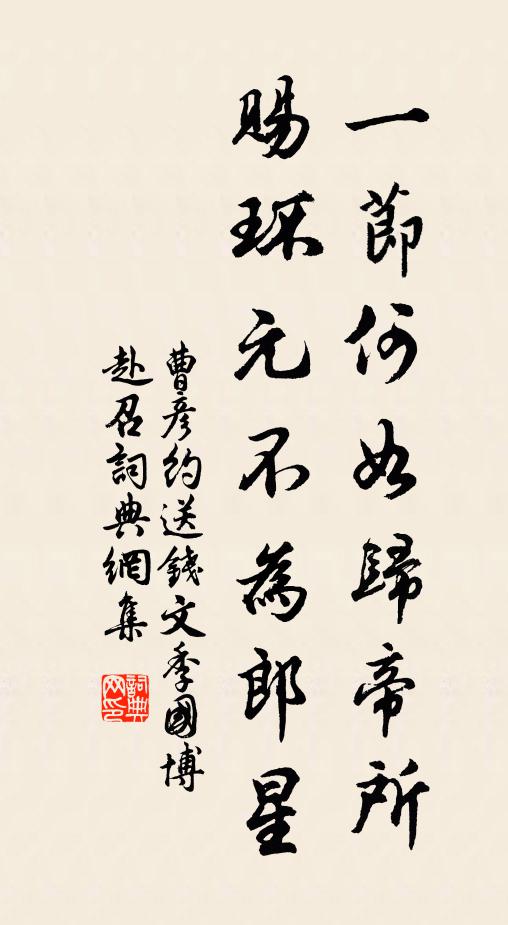 一節何如歸帝所
賜環元不為郎星
曹彥約送錢文季國博
赴召詞典網集
詞典
网印